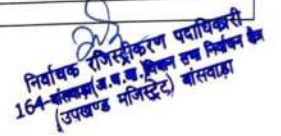 निर्वाचक रजिस्ट्रीकरण पदाधिकारी
164-बांसवाड़ा(अ.ज.जा.) विधान सभा निर्वाचन क्षेत्र
(उपखण्ड मजिस्ट्रेट) बांसवाड़ा